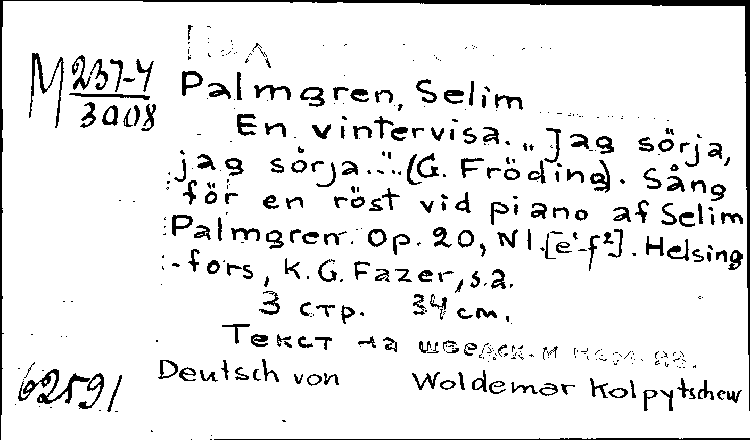 Пал
M 237-4
3008
Palmgren, Selim
En vintervisa. „Jag sörja,
jag sörja..." (G. Fröding). Sång
för en röst vid piano af Selim
Palmgren. Op. 20, N1. [e¹-f²]. Helsing
-fors, K. G. Fazer, s.a.
3 стр. 34 cm.
Текст на шведск. и нем. яз.
Deutsch von Woldemar Kolpytschew
62591